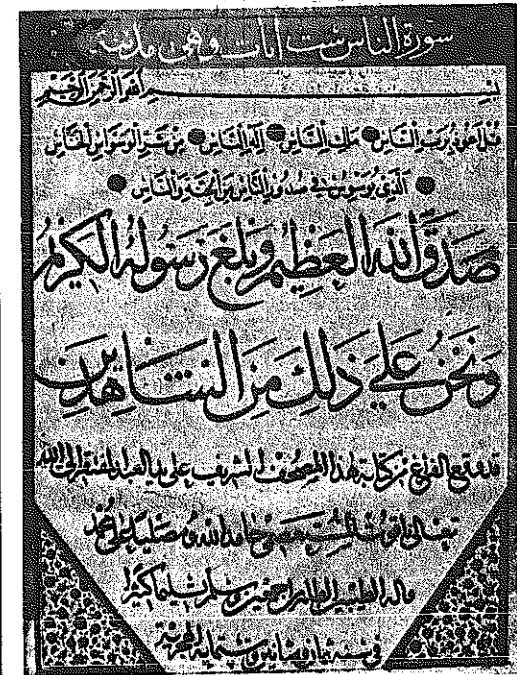 سورة الناس ست آيات وهي مدنية
بسم الله الرحمن الرحيم
قل أعوذ برب الناس ملك الناس إله الناس من شر الوسواس الخناس
الذي يوسوس في صدور الناس من الجنة والناس
صدق الله العظيم وبلغ رسوله الكريم
ونحن على ذلك من الشاهدين
قد وقع الفراغ من كتابة هذا المصحف الشريف على يد العبد المفتقر إلى الله
تعالى ياقوت المستعصمي حامدا لله ومصليا على محمد
وآله الطيبين الطاهرين أجمعين وسلم تسليما كثيرا
في سنة ثمان وثمانين وستمائة الهجرية